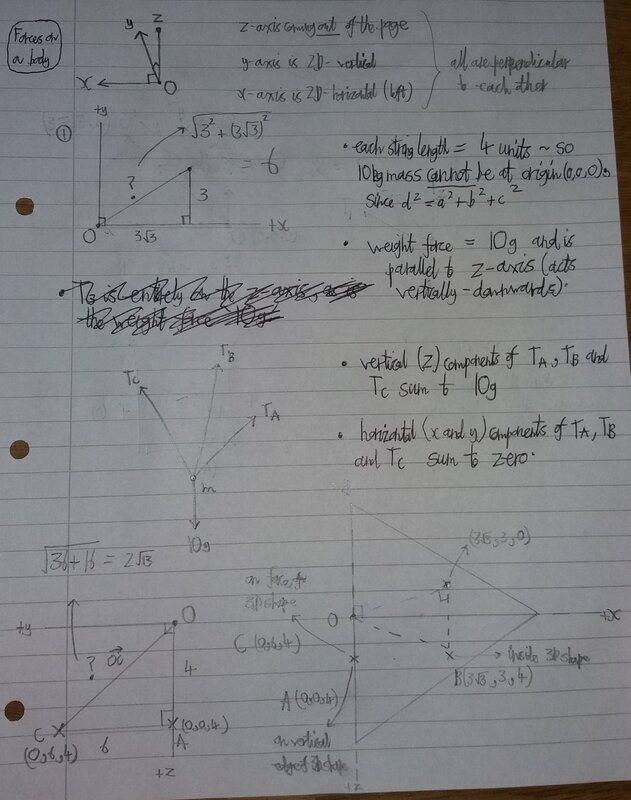 Forces on
a body
y
z
x
O
z-axis coming out of the page
y-axis is 2D-vertical
x-axis is 2D-horizontal (left)
all are perpendicular
to each other
①
+y
√3² + (3√3)²
= 6
?
3
O
3√3
+x
• each string length = 4 units ~ so
10kg mass cannot be at origin (0,0,0),
since d² = a² + b² + c²
• weight force = 10g and is
parallel to z-axis (acts
vertically-downwards).
• vertical (z) components of TA, TB and
TC sum to 10g
• horizontal (x and y) components of TA, TB
and TC sum to zero.
TC
TB
TA
m
10g
√36+16 = 2√13
+y
O
?
OC
4
C
(0,6,4)
6
(0,0,4)
A
+z
3D shape
C (0,6,4)
O
(3√3,3,0)
+x
inside 3D shape
B(3√3,3,4)
A(0,0,4)
on vertical
edge of 3D shape
+z